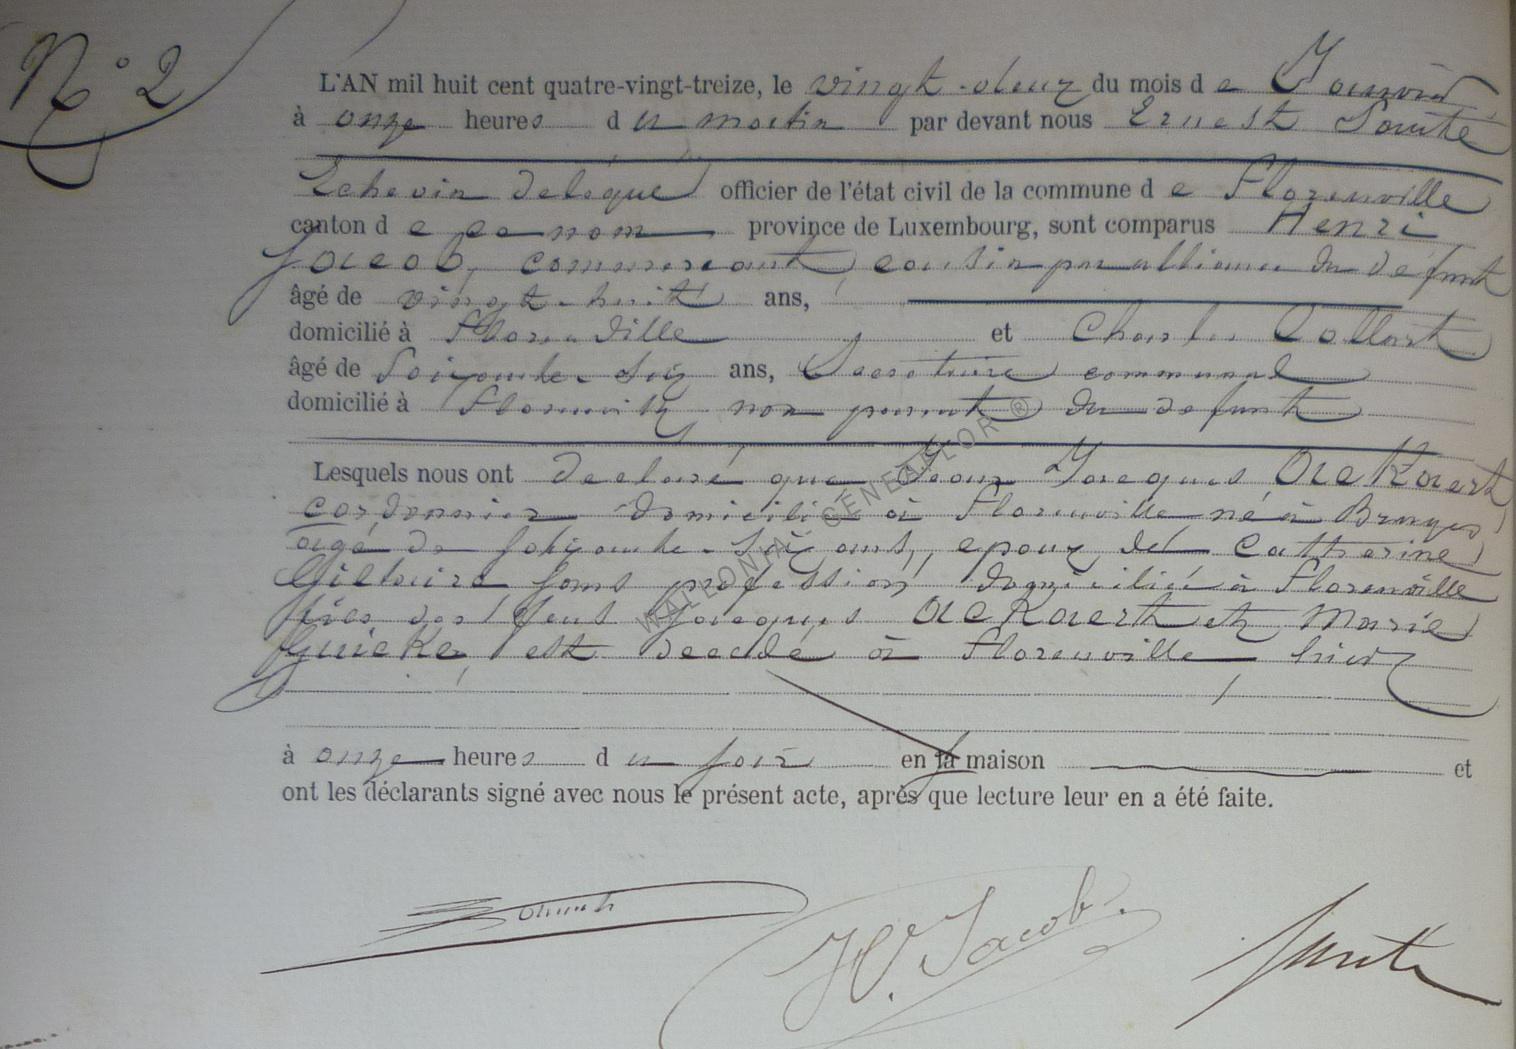 N° 2
L'AN mil huit cent quatre-vingt-treize, le vingt-deux du mois d e Janvier
à onze heures d u matin par devant nous Ernest
Echevin délégué officier de l'état civil de la commune d e Florenville
canton d e ce nom province de Luxembourg, sont comparus Henri
Jacob, commercant, cousin par alliance du defunt
âgé de vingt-huit ans,
domicilié à Florenville et Charles Collart
âgé de Soixante-six ans, Secrétaire communal
domicilié à Florenville non parent du defunt
Lesquels nous ont declaré que Jean Jacques Ackaert
cordonnier domicilié à Florenville né à Bruges
agé de soixante-six ans, epoux de Catherine
sans profession domiciliée à Florenville
fils des feus Jacques Ackaert et Marie
est decedé à Florenville hier
à onze heures d u soir en sa maison et
ont les déclarants signé avec nous le présent acte, après que lecture leur en a été faite.
H. Jacob
WALLONIA - GENEAFLOR ®